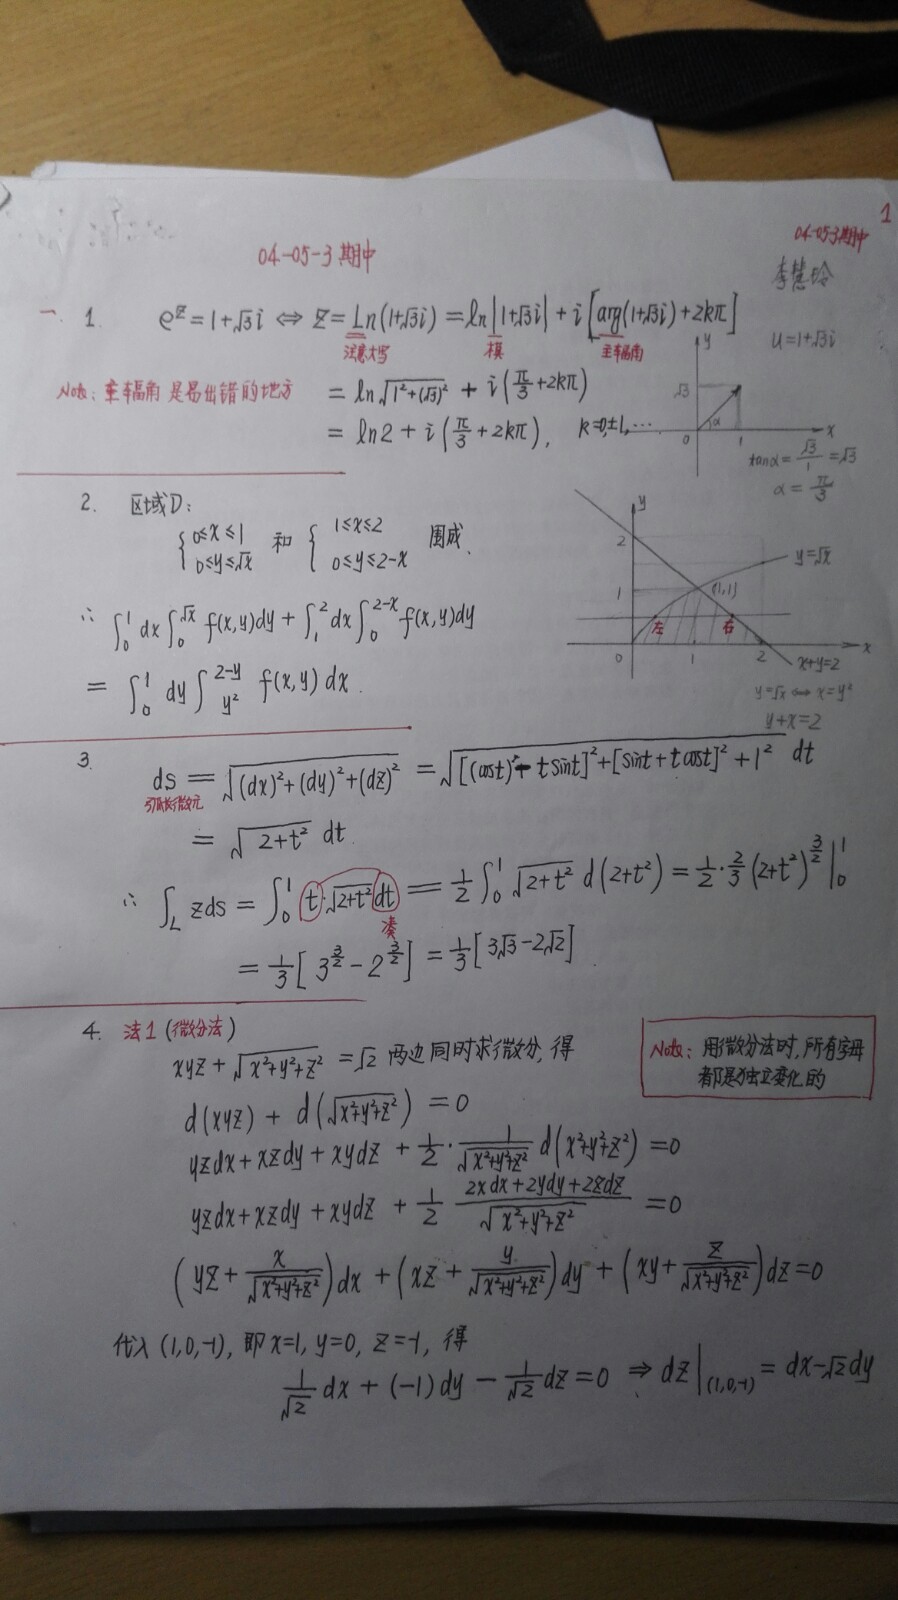 1
04-05-3期中
04-05-3期中
李慧玲
一 1. e^z=1+√3i ⇔ z=Ln(1+√3i)=ln|1+√3i|+i[arg(1+√3i)+2kπ]
注意大写 模 主辐角
u=1+√3i
y
√3
α
0 1 x
Note: 主辐角是易出错的地方
=ln√(1²+(√3)²)+i(π/3+2kπ)
=ln2+i(π/3+2kπ), k=0,±1,…
tanα=√3/1=√3
α=π/3
2. 区域D:
{0≤x≤1 和 {1≤x≤2 围成.
0≤y≤√x 0≤y≤2-x
y
2
1
(1,1)
y=√x
左 右
0 1 2 x
x+y=2
y=√x ⇔ x=y²
y+x=2
∴ ∫₀¹dx∫₀^(√x) f(x,y)dy+∫₁²dx∫₀^(2-x) f(x,y)dy
=∫₀¹dy∫_(y²)^(2-y) f(x,y)dx.
3. ds=√((dx)²+(dy)²+(dz)²)=√([(cost)-tsint]²+[sint+tcost]²+1²) dt
弧长微元
=√(2+t²) dt.
∴ ∫_L zds=∫₀¹t·√(2+t²)dt=1/2∫₀¹√(2+t²)d(2+t²)=1/2·2/3(2+t²)^(3/2)|₀¹
凑
=1/3[3^(3/2)-2^(3/2)]=1/3[3√3-2√2].
4. 法1(微分法)
xyz+√(x²+y²+z²)=√2 两边同时求微分,得
Note: 用微分法时,所有字母
都是独立变化的
d(xyz)+d(√(x²+y²+z²))=0
yzdx+xzdy+xydz+1/2·1/√(x²+y²+z²)d(x²+y²+z²)=0
yzdx+xzdy+xydz+1/2 (2xdx+2ydy+2zdz)/√(x²+y²+z²)=0
(yz+x/√(x²+y²+z²))dx+(xz+y/√(x²+y²+z²))dy+(xy+z/√(x²+y²+z²))dz=0
代入(1,0,-1),即x=1,y=0,z=-1,得
1/√2dx+(-1)dy-1/√2dz=0 ⇒ dz|(1,0,-1)=dx-√2dy